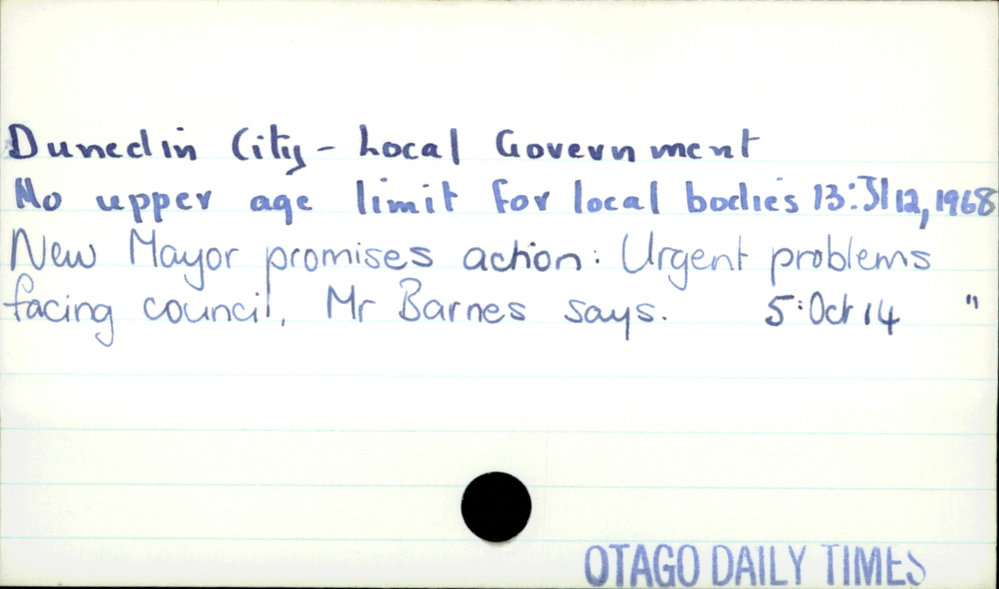 Dunedin City - Local Government
No upper age limit for local bodies 13: Jl 12, 1968
New Mayor promises action: Urgent problems
facing council, Mr Barnes says. 5: Oct 14 "
OTAGO DAILY TIMES